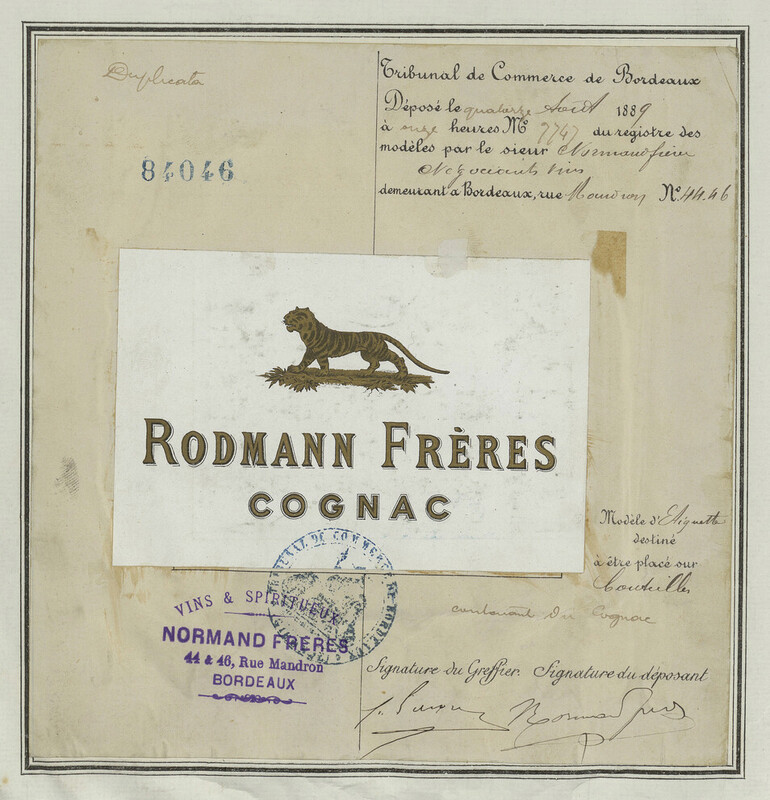 Duplicata
84046
Tribunal de Commerce de Bordeaux
Déposé le quatorze Août 1889
à onze heures No 7747 du registre des
modèles par le sieur Normand frères
Négociants vins
demeurant à Bordeaux, rue Mandron No. 44.46
RODMANN FRÈRES
COGNAC
Modèle d'Etiquette
destiné
à être placé sur
Bouteilles
contenant du Cognac
TRIBUNAL DE COMMERCE DE BORDEAUX
VINS & SPIRITUEUX
NORMAND FRÈRES
44 & 46, Rue Mandron
BORDEAUX
Signature du Greffier. Signature du déposant
Normand frères